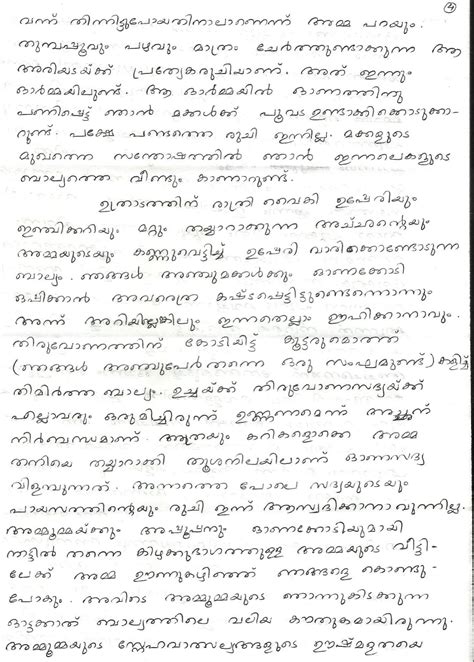 ④
വന്ന് തിന്നിട്ടുപോയതിനാലാണെന്ന് അമ്മ പറയും.
തുമ്പപ്പൂവും പഴവും മാത്രം ചേർത്തുണ്ടാക്കുന്ന ആ
അരിയടയ്ക്ക് പ്രത്യേകരുചിയാണ്. അത് ഇന്നും
ഓർമ്മയിലുണ്ട്. ആ ഓർമ്മയിൽ ഓണത്തിനു
പണിപ്പെട്ട് ഞാൻ മക്കൾക്ക് പൂവട ഉണ്ടാക്കിക്കൊടുക്കാ-
റുണ്ട്. പക്ഷേ പണ്ടത്തെ രുചി ഇന്നില്ല. മക്കളുടെ
മുഖത്തെ സന്തോഷത്തിൽ ഞാൻ ഇന്നലെകളുടെ
ബാല്യത്തെ വീണ്ടും കാണാറുണ്ട്.
ഉത്രാടത്തിന് രാത്രി വൈകി ഉപ്പേരിയും
ഇഞ്ചിക്കറിയും മറ്റും തയ്യാറാക്കുന്ന അച്ഛന്റെയും
അമ്മയുടെയും കണ്ണുവെട്ടിച്ച് ഉപ്പേരി വാരിക്കൊണ്ടോടുന്ന
ബാല്യം. ഞങ്ങൾ അഞ്ചുമക്കൾക്കും ഓണക്കോടി
ഒപ്പിക്കാൻ അവരെത്ര കഷ്ടപ്പെട്ടിട്ടുണ്ടെന്നൊന്നും
അന്ന് അറിയില്ലെങ്കിലും ഇന്നതെല്ലാം ഊഹിക്കാനാവും.
തിരുവോണത്തിന് കോടിയിട്ട് കൂട്ടരുമൊത്ത്
(ഞങ്ങൾ അഞ്ചുപേർതന്നെ ഒരു സംഘമുണ്ട്) കളിച്ച്
തിമിർത്ത ബാല്യം. ഉച്ചയ്ക്ക് തിരുവോണസദ്യയ്ക്ക്
എല്ലാവരും ഒരുമിച്ചിരുന്ന് ഉണ്ണണമെന്ന് അച്ഛന്
നിർബന്ധമാണ്. അത്രയും കറികളൊക്കെ അമ്മ
തനിയെ തയ്യാറാക്കി തൂശനിലയിലാണ് ഓണസദ്യ
വിളമ്പുന്നത്. അന്നത്തെ പോലെ സദ്യയുടെയും
പായസത്തിന്റെയും രുചി ഇന്ന് ആസ്വദിക്കാനാവുന്നില്ല.
അമ്മൂമ്മയ്ക്കും അപ്പൂപ്പനും ഓണക്കോടിയുമായി
നാട്ടിൽ തന്നെ കിഴക്കുഭാഗത്തുള്ള അമ്മയുടെ വീട്ടി-
ലേക്ക് അമ്മ ഊണുകഴിഞ്ഞ് ഞങ്ങളെ കൊണ്ടു-
പോകും. അവിടെ അമ്മൂമ്മയുടെ ഞാന്നുകിടക്കുന്ന
ഓട്ടക്കാത് ബാല്യത്തിലെ വലിയ കൗതുകമായിരുന്നു.
അമ്മൂമ്മയുടെ സ്നേഹവാത്സല്യങ്ങളുടെ ഊഷ്മളതയെ